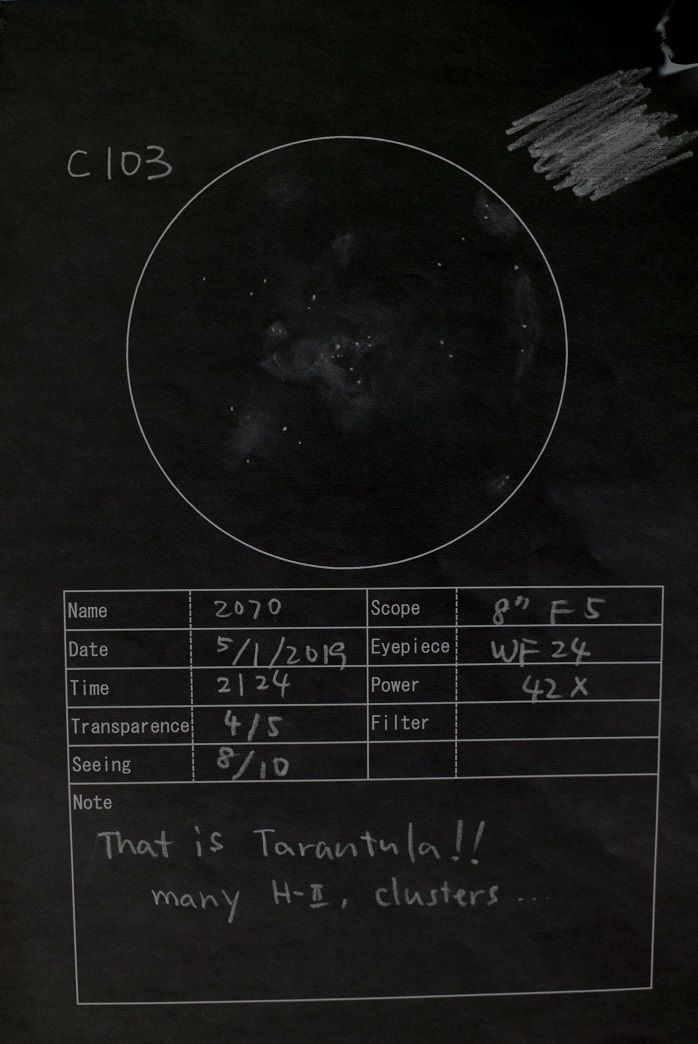 C 103
Name 2070 Scope 8" F5
Date 5/1/2019 Eyepiece WF 24
Time 2124 Power 42X
Transparence 4/5 Filter
Seeing 8/10
Note
That is Tarantula!!
many H-Ⅱ, clusters...